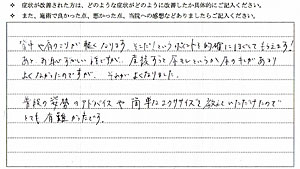 ※ 症状が改善された方は、どのような症状がどのように改善したか具体的にご記入ください。
※ また、施術で良かった点、悪かった点、当院への感想などありましたらご記入ください。
背中や肩のコリが軽くなります。そこだ!というポイントを的確にほぐしてもらえます!
あと、お恥ずかしい話ですが、
よくなかったのですが、それがよくなりました。
普段の姿勢のアドバイスや簡単なエクササイズを教えていただけたので
とても有難かったです。